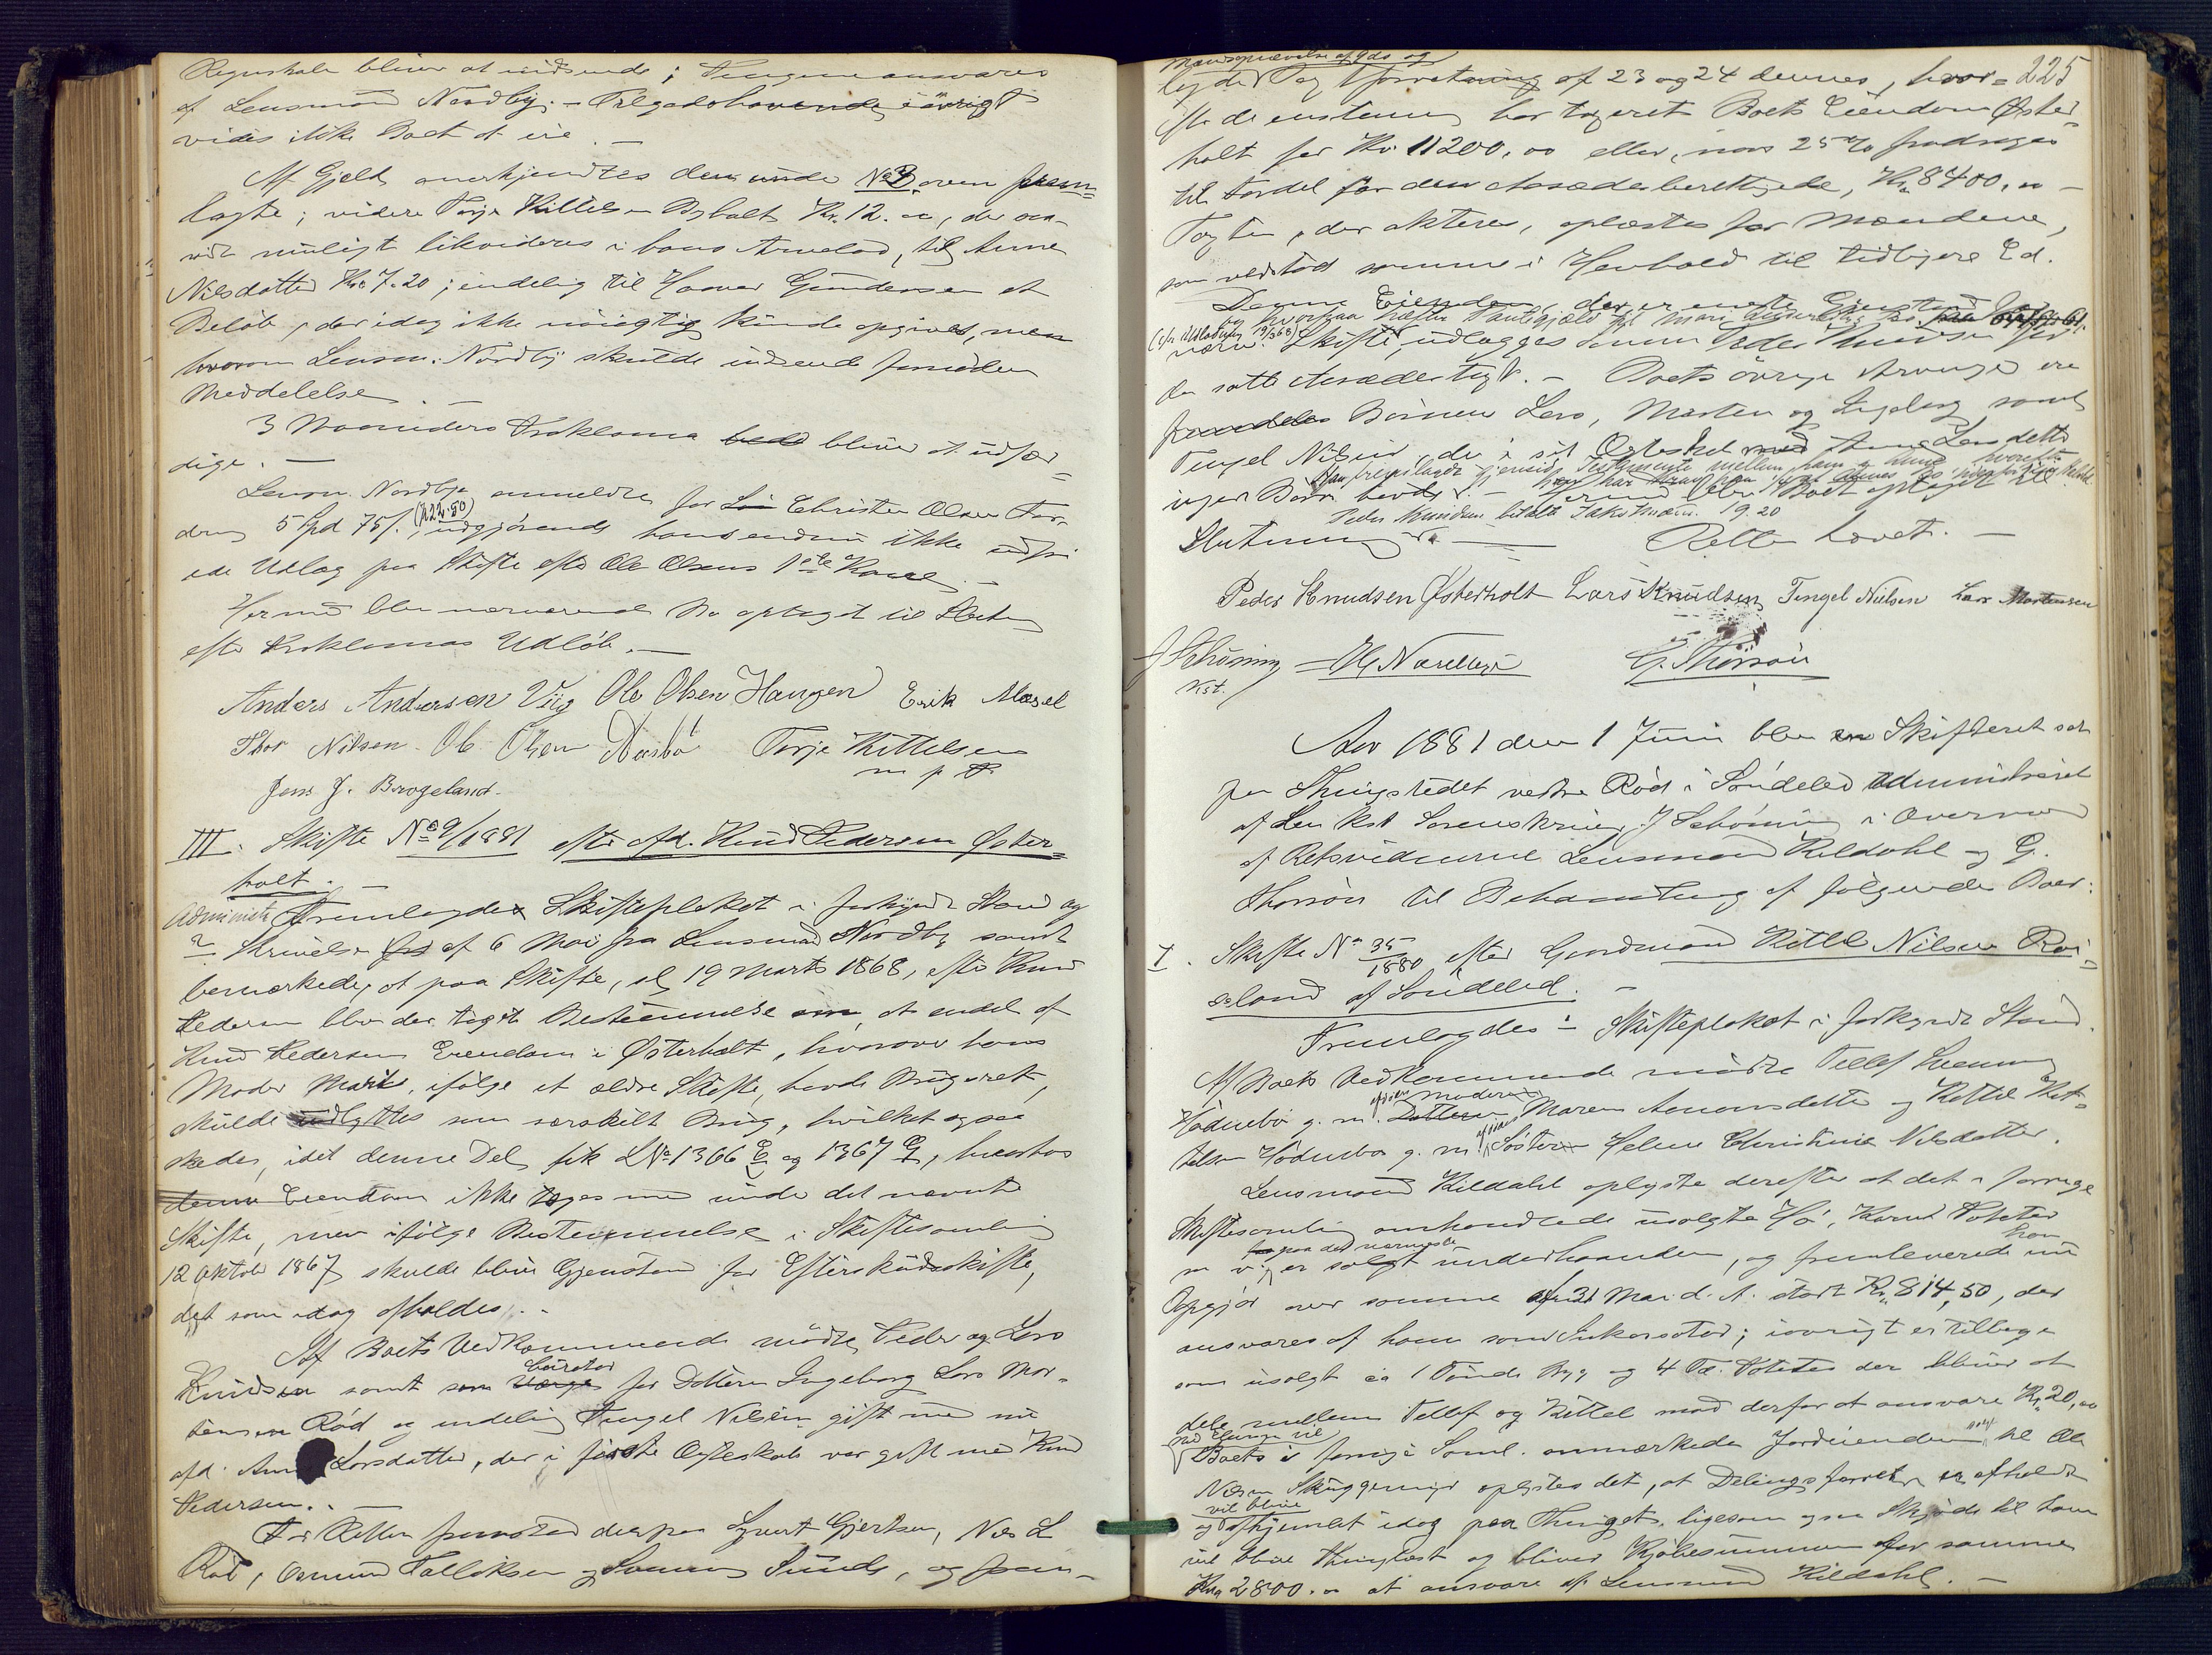 Regnskab bliver at indsende; Pengene ansvares
af Lensmand Nordby. – Tilgodehavende iövrigt
vides ikke Boet at eie. –
Af Gjeld anerkjendtes den under No 3 oven frem-
lagte; videre Torje Kittelsen Kr. 12.00, der saa-
vidt muligt likvideres i hans Arvelod, til Anne
Nilsdatter Kr. 7.20; endelig til Gundersen et
Beløb, der idag ikke nöiagtig kunde opgives, men
hvorom Lensm. Nordby skulde indsende fornöden
Meddelelse. –
3 Maaneders Proklama bliver at udfær-
dige. –
Lensm. Nordby anmeldte for Christen Olsen
5 Spd 75 s. (kr 22.50), udgjörende hans endnu ikke
Udlag paa Skifte efter Ole Olsens 1ste Kone. –
Hermed blev nærværende Bo optaget til Slutning
efter Proklamas Udlöb. –
Anders Andersen Viig Ole Olsen Haugen Erik Mæsel
Thor Nilsen Ole Olsen Torje Kittelsen
m p P
Jens J. Brogeland.
III. Skifte No 9/1881 efter afd. Knud Pedersen Öster-
holt. –
Fremlagdes Skifteplakat i forkyndt Stand og
Skrivelse af 6 Mai fra Lensmand Nordby samt
bemærkede, at paa Skifte, sl. 19 Marts 1868, efter Knud
Pedersen blev der taget Bestemmelse om, at endel af
Knud Pedersens Eiendom i Østerholt, hvorover hans
Moder, ifölge et ældre Skifte, havde Brugsret,
skulde udskyldes som særskilt Brug, hvilket ogsaa
skedes, idet denne Del fik LNo 1366 og 1367, hvorhos
denne Eiendom ikke toges med under det nævnte
Skifte, men ifölge Bestemmelse i Skiftesamling
12 Oktober 1867 skulde blive Gjenstand for Efterskudsskifte,
det som idag afholdes. –
Af Boets Vedkommende mödte Peder og Lars
Knudsen samt som Værge kurator for Datteren Ingeborg Lars Mor-
tensen Röd og endelig Tengel Nilsen gift med nu
afd. Anne Larsdatter, der i förste Ægteskab var gift med Knud
Pedersen. –
For Retten fremstod derpaa Syvert Gjertsen, Nils L
Röd, Osmund Tallaksen og Sunde, og frem-
225
lagdes Tagtforretning af 23 og 24 dennes, hvor-
efter de enstemmig har taxeret Boets Eiendom Øster-
holt for Kr. 11200,00 eller, naar 25 % fradrages
til Fordel for den Aasædesberettigede, Kr. 8400,00 –
Taxten, der akteres, oplæstes for Mændene,
som vedstod samme i Henhold til tidligere Ed.
Denne Eiendom, der er eneste Gjenstand for
nærv. Skifte, udlægges Sönnen Peder Knudsen for
den satte Aasædestaxt. – Boets övrige Arvinger ere
Börnene Lars, Marten og Ingeborg samt
Tengel Nilsen, der i sit Ægteskab med Anne Larsdatter
ingen Börn havde. – Hermed blev Boet optaget til
Peder Knudsen betalte Takstmænd. 19.20
Slutning. – Retten hævet. –
Peder Knudsen Østerholt Lars Knudsen Tengel Nilsen Lars Mortensen
J Schöning
Kst.
G. Thorsön
Aar 1881 den 1 Juni blev Skifteret sat
paa Thingstedet vestre Röd i Söndeled administreret
af den kst Sorenskriver J Schöning i Overvær
af Retsvidnerne Lensmand Kildahl og G.
Thorsön til Behandling af fölgende Boer:
I. Skifte No 35/1880 efter Gaardmand Kittel Nilsen Röi-
seland af Söndeled. –
Fremlagdes: Skifteplakat i forkyndt Stand.
Af Boets Vedkommende mödte Tellef
Hödnebö g. m. Moderen Maren Aanonsdatter og Kittel Kit-
telsen Hödnebö g. m. Söster Helene Christine Nilsdatter.
Lensmand Kildahl oplyste derefter at det i forrige
Skiftesamling omhandlede usolgte Hö, Korn, Poteter
m v paa det nærmeste er solgt underhaanden, og fremleverede han nu
Opgjör over samme af 31 Mai d. A. stort Kr. 814,50, der
ansvares af ham som Inkassator; iövrigt er tilbage
som usolgt ca 1 Tönde Byg og 4 Td. Poteter der bliver at
dele mellem Tellef og Kittel mod derfor at ansvare Kr. 20,00
Boets i forrige Saml. anmærkede Jordeiendom solgt til Ole
Nilsen oplystes det, at Delingsforretn. er afholdt
og vil blive afhjemlet idag paa Thinget, ligesom ogsaa Skjöde til ham
vil blive thinglæst og bliver Kjöbesummen for samme
Kr. 2800.00 at ansvare af Lensmand Kildahl. –